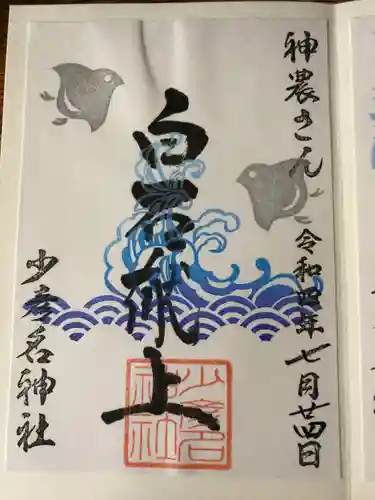 神農さん
令和四年七月廿四日
白 上
少彦名神社
少彦名
神社